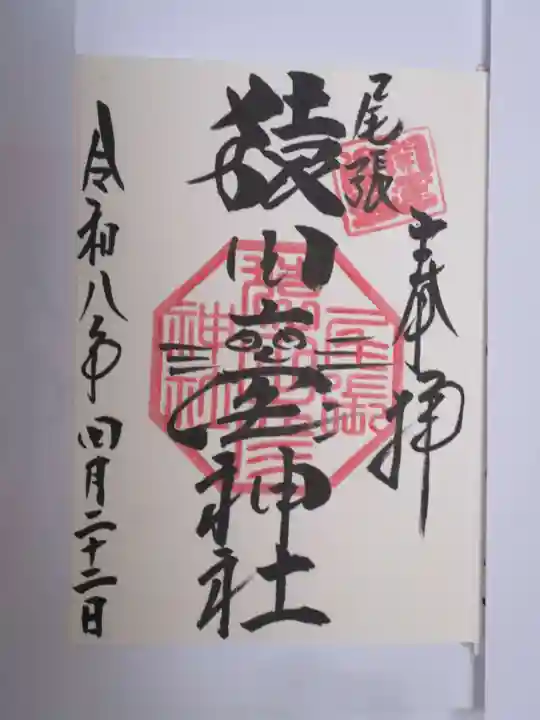 奉拝
尾張
猿田彦神社
尾張
神社
令和八年四月二十二日